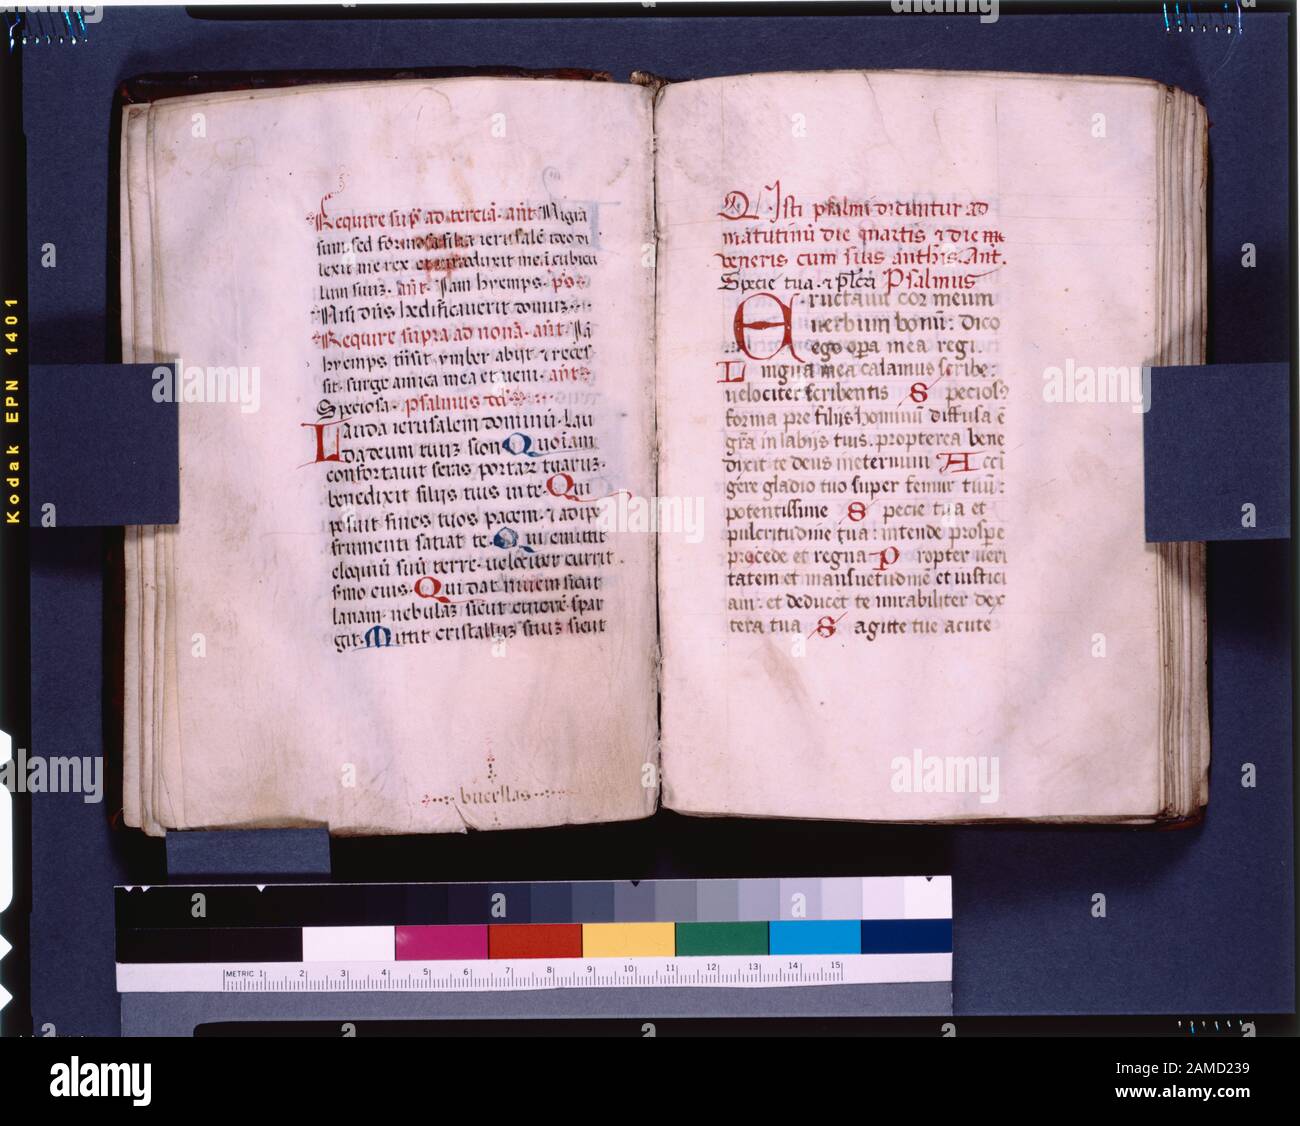 Require sup̃ ad terciã. añt. Nigra
sum sed formosa filia ierusalẽ ideo di
lexit me rex et introduxit me ĩ cubicu
lum suuz. añt. Iam hyemps. p̃s.
Nisi dñs hedificauerit domuz.
Require supra ad nonã. añt. Iã
hyemps trãsit ymber abijt ⁊ reces
sit. surge amica mea et ueni. añt.
Speciosa. psalmus
Lauda ierusalem dominũ. lau
da deum tuuz sion Quoiam
confortauit seras portaꝝ tuaruz.
benedixit filijs tuis in te. Qui
posuit fines tuos pacem. ⁊ adipe
frumenti satiat te. Qui emittit
eloquiũ suũ terre. uelociter currit
smo eius. Qui dat niuem sicut
lanam. nebulaz sicut cinorẽ spar
git. Mittit cristalluz suuz sicut
buerllas
Isti psalmi dicuntur ad
matutinũ die quartis ⁊ die
veneris cum suis anthis. Ant.
Specie tua. ⁊ Psalmus
Eructauit cor meum
uerbum bonũ: dico
ego oꝑa mea regi.
Lingua mea calamus scribe:
uelociter scribentis Specios⁹
forma pre filijs hominũ diffusa ẽ
grã in labijs tuis. propterea bene
dixit te deus ineternum Acci
gẽre gladio tuo super femur tuũ:
potentissime Specie tua et
pulcritudine tua: intende prospe
procede et regna Propter ueri
tatem et mansuetudinẽ et iustici
am: et deducet te mirabiliter dex
tera tua Sagitte tue acute
Kodak EPN 1401
METRIC 1 2 3 4 5 6 7 8 9 10 11 12 13 14 15
alamy
Image ID: 2AMD239
www.alamy.com